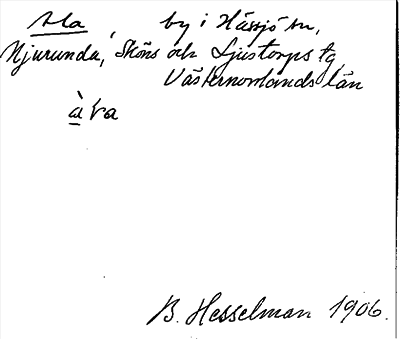 by i Hässjö sn,
Njurunda, Sköns och Ljustorps tg
Västernorrlands län
B. Hesselman 1906.